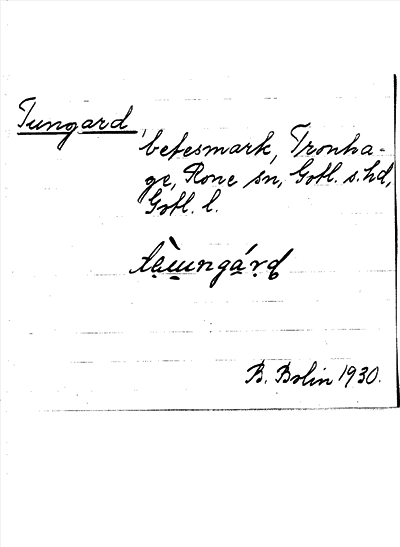 Tungard,
betesmark, Tronha-
ge, Rone sn, Gotl. s. hd,
Gotl. l.
B. Bolin 1930.